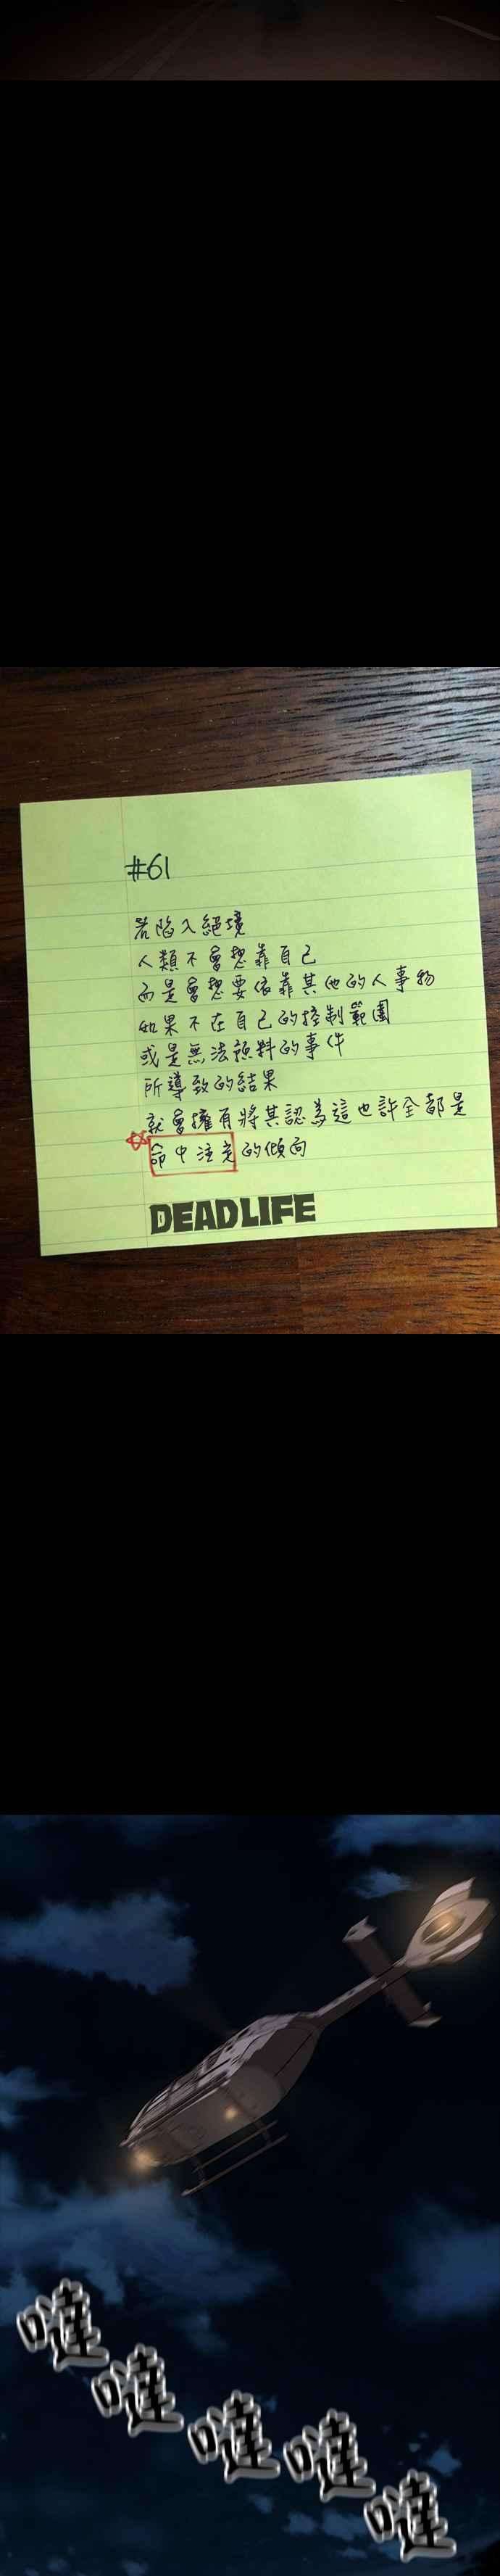 #61
若陷入絕境
人類不會想靠自己
而是會想要依靠其他的人事物
如果不在自己的控制範圍
或是無法預料的事件
所導致的結果
就會擁有將其認為這也許全都是
命中注定的傾向
DEADLIFE
噠噠噠噠噠